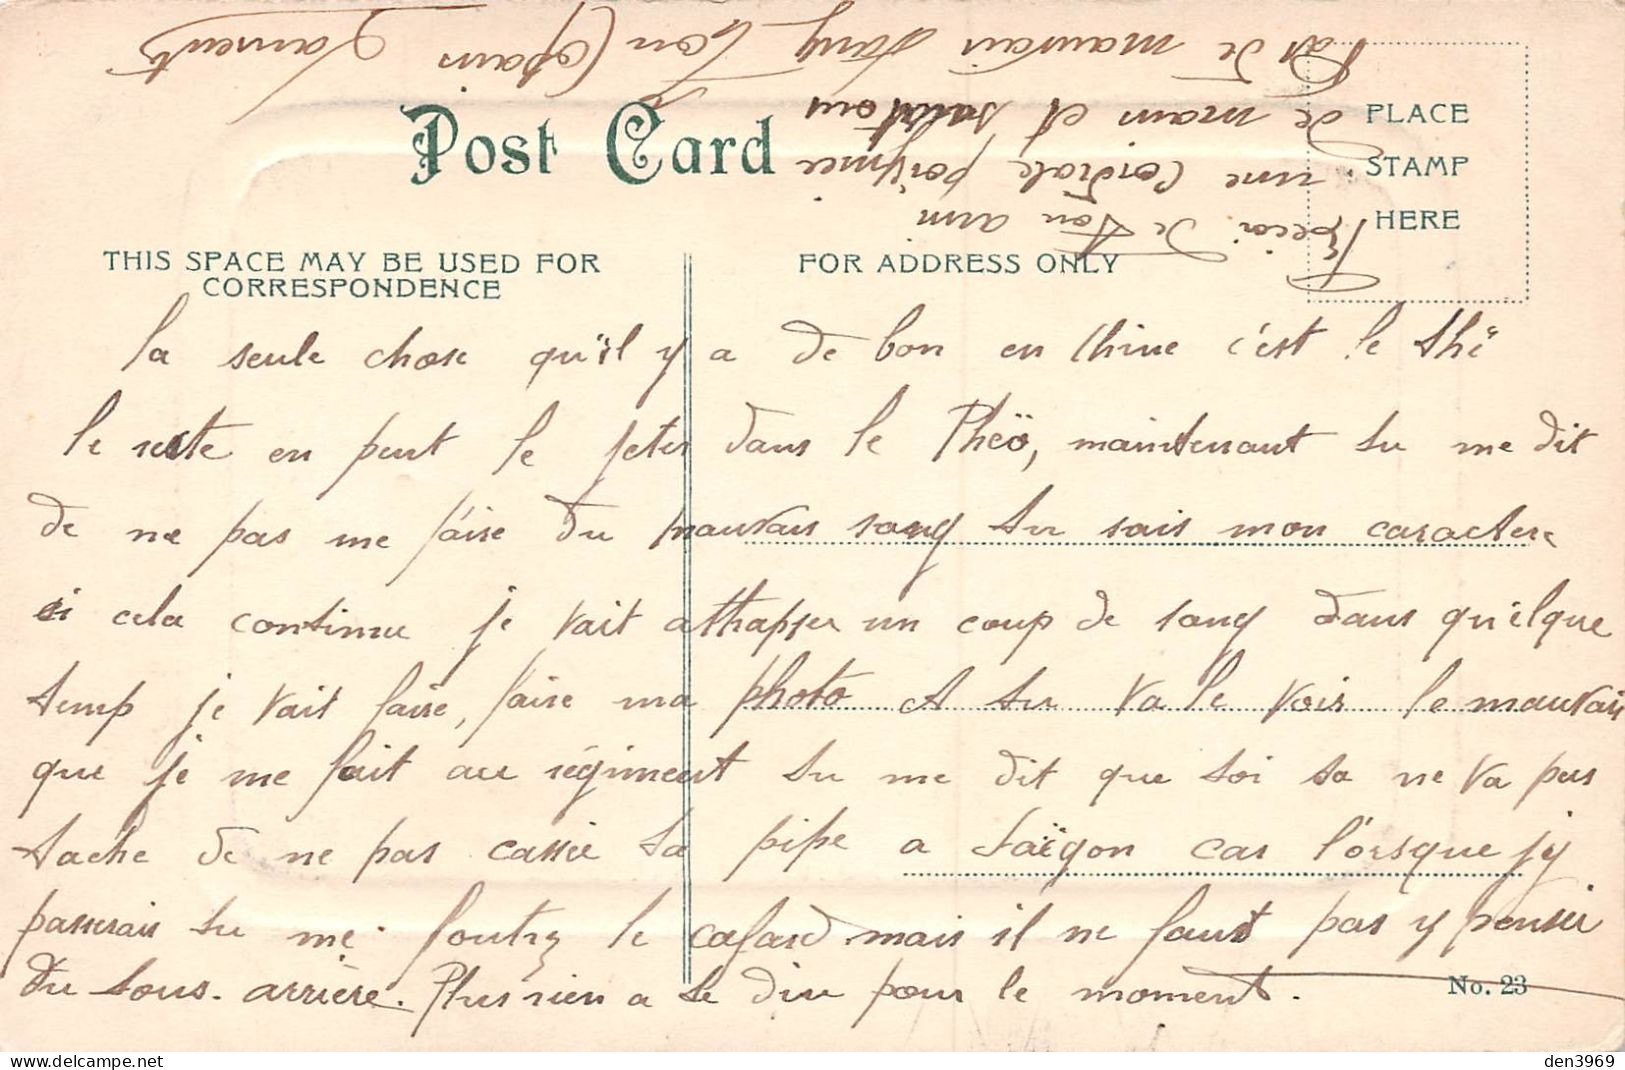 Post Card
PLACE
STAMP
HERE
THIS SPACE MAY BE USED FOR
CORRESPONDENCE
FOR ADDRESS ONLY
la seule chose qu'il y a de bon en Chine c'est le thé
le reste en peut le jeter dans le Phéo, maintenant tu me dit
de ne pas me faire du mauvais sang tu sais mon caractere
si cela continue je vait atthapper un coup de sang dans quelque
temp je vait faire, faire ma photo et tu va le voir le mauvais
que je me fait au régiment tu me dit que toi sa ne va pas
tache de ne pas cassée ta pipe a Saïgon car l'orsque j'y
passerais tu me foutrez le cafard mais il ne faut pas y penser
du tous. arrière. Plus rien a te dire pour le moment.
Reçoi de ton ami
une Cordiale poignée
de main et salutou
Pas de mauvais sang Ton Copain Laurent
No. 23
den3969